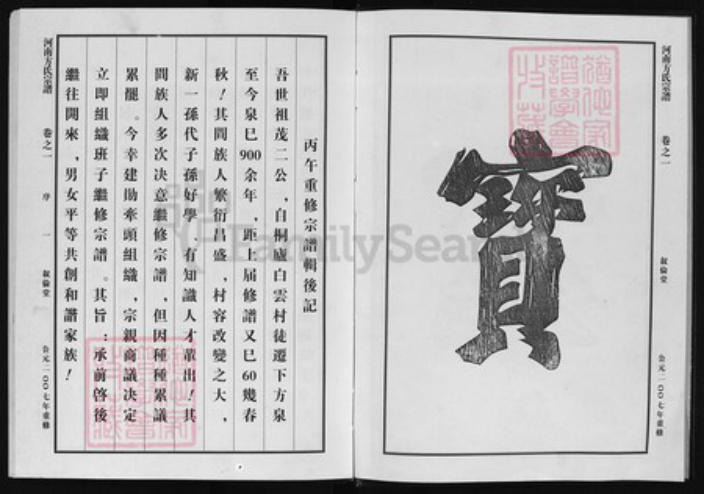 寶
河南方氏宗譜 卷之一 叙倫堂 公元二〇〇七年重修
丙午重修宗譜輯後記
吾世祖茂二公，自桐廬白雲村徒遷下方泉
至今泉巳900余年，距上届修譜又巳60幾春
秋！其間族人繁衍昌盛，村容改變之大，
新一孫代子孫好學，有知識人才輩出！其
間族人多次决意繼修宗譜，但因種種累議
累罷。今幸建勛牽頭組織，宗親商議决定
立即組織班子繼修宗譜。其旨：承前啓後
繼往開來，男女平等共創和諧家族！
河南方氏宗譜 卷之一 序 一 叙倫堂 公元二〇〇七年重修
FamilySear